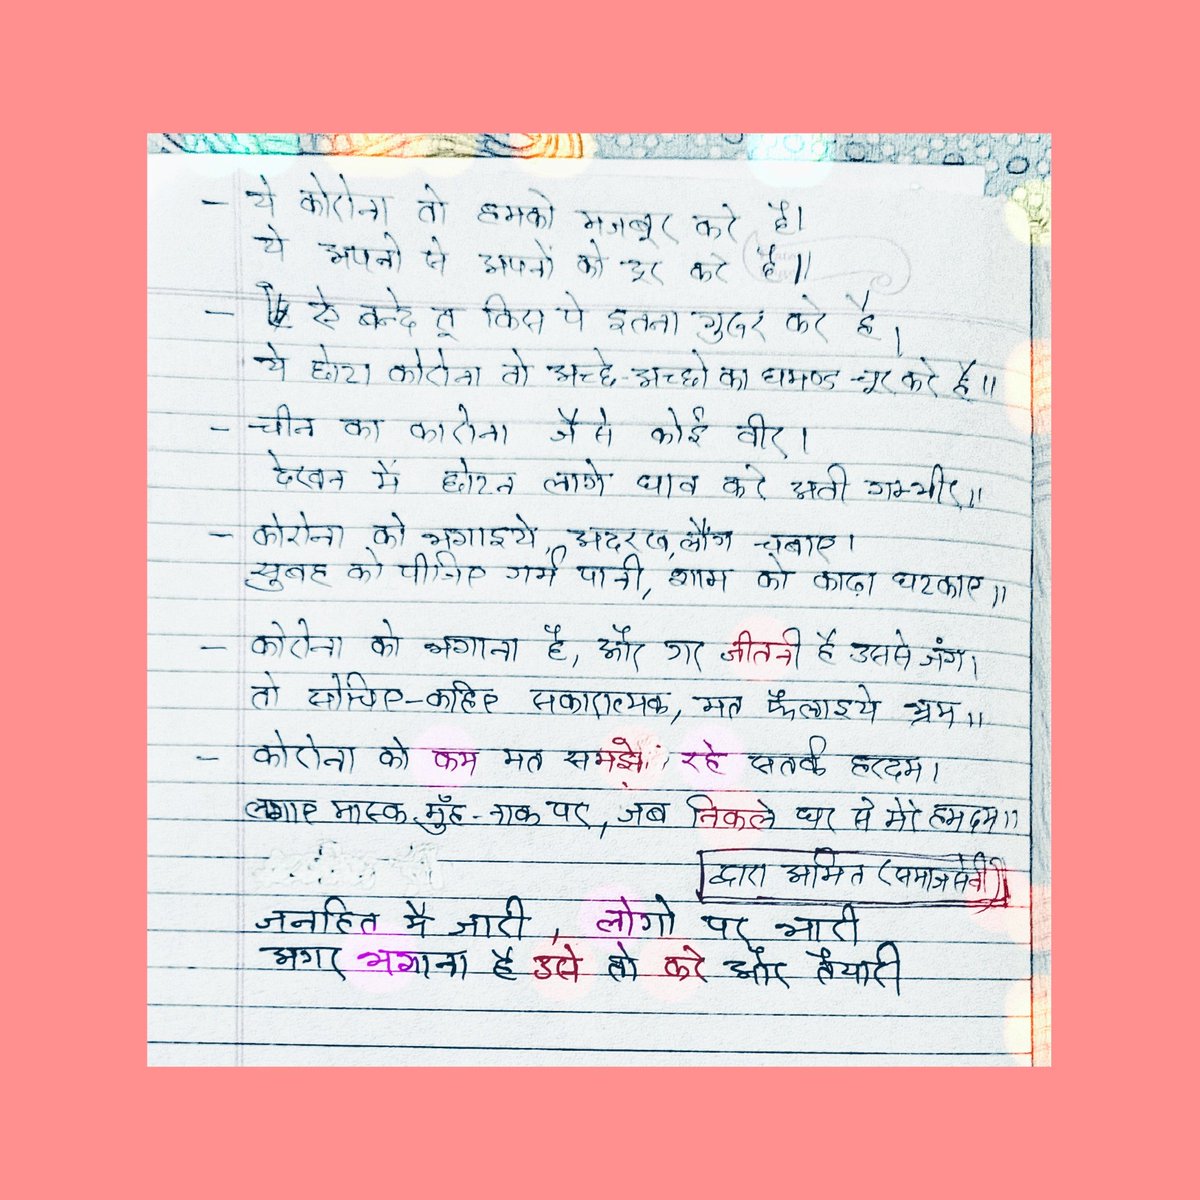 - ये कोरोना तो हमको मजबूर करे है।
ये अपनो से अपनों को दूर करे है॥
- ऐ बन्दे तू किस पे इतना गुरुर करे है।
ये छोटा कोरोना तो अच्छे-अच्छो का घमण्ड चूर करे है॥
- चीन का कारोना जैसे कोई वीर।
देखन में छोटन लागे घाव करे अती गम्भीर॥
- कोरोना को भगाइये, अदरख, लौंग चबाए।
सुबह को पीजिए गर्म पानी, शाम को काढ़ा घटकाए॥
- कोरोना को भगाना है, और गर जीतनी है उससे जंग।
तो सोचिए-कहिए सकारात्मक, मत फैलाइये भ्रम॥
- कोरोना को कम मत समझे, रहे सतर्क हरदम।
लगाए मास्क मुँह-नाक पर, जब निकले घर से मेरे हमदम॥
द्वारा अमित (समाजसेवी)
जनहित मै जारी, लोगो पर भारी
अगर भगाना है उसे तो करे और तैयारी